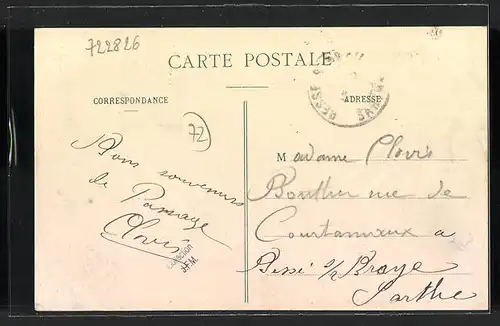 722826
CARTE POSTALE
CORRESPONDANCE
ADRESSE
72
Bons souvenirs
de Passage
Clovis
Collection
J.F.M.
Madame Clovis
rue de
a
Bessé s/ Braye
Sarthe